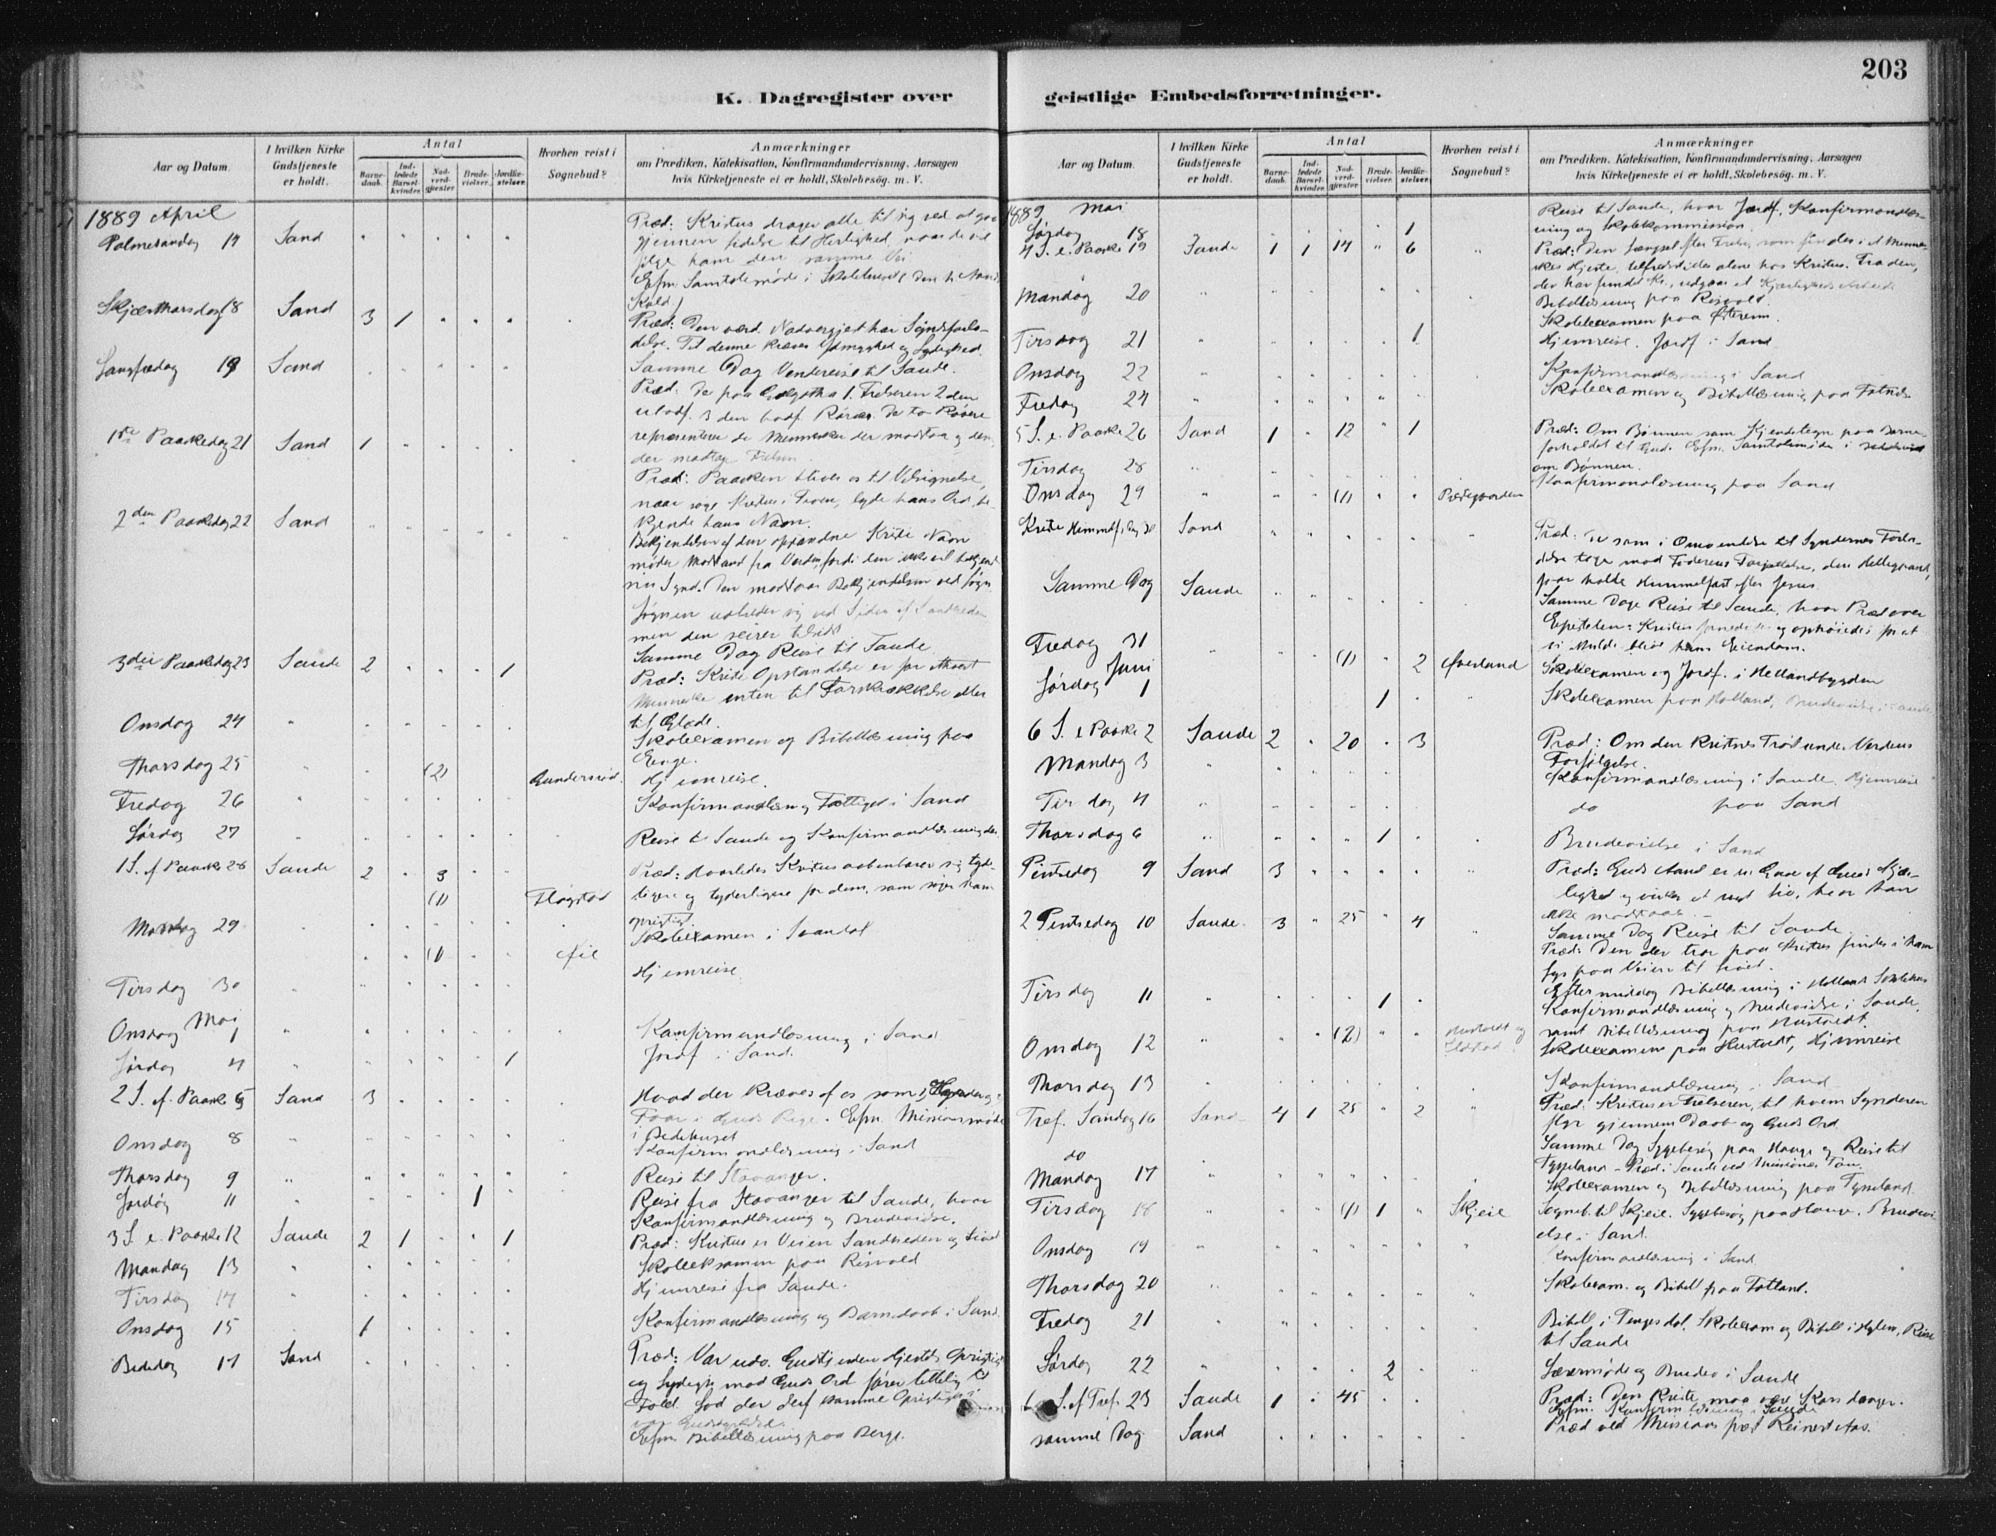 203
K. Dagregister over geistlige Embedsforretninger.
Aar og Datum.
I hvilken Kirke Gudstjeneste er holdt.
Antal
Barnedaab.
Indledede Barselkvinder.
Nadverdgjester.
Brudevielser.
Jordfæstelser.
Hvorhen reist i Sognebud?
Anmærkninger
om Prædiken, Katekisation, Konfirmandundervisning, Aarsagen
hvis Kirketjeneste ei er holdt, Skolebesøg. m. V.
1889 April
Palmesøndag 14 Sand Præd: Kristus drager alle til sig ved at gaa
gjennem lidelse til Herlighed, naar de vil
følge ham den samme Vei
Efm. Samtalemøde i
Skjærthorsdag 18 Sand 3 1
Præd: Den Nadvergjæst har Syndsforla-
delse. Til denne kræves Ydmyghed og Lydighed.
Langfredag 19 Sand Samme Dag Vendereise til Sande.
Præd: De paa Golgatha 1. Frelseren 2 den
3 den bodf. Røver. De to Røvere
1ste Paaskedag 21 Sand 1 repræsentere de Mennesker der modtaa og den,
der modtog Frelsen.
Præd: Paasken bliver os til Velsignelse,
naar søge Kristus i Troen, lyde hans Ord, be-
2den Paaskedag 22 Sand kjende hans Navn.
Bekjendelsen af den opstandne Kristi Navn
møder Modstand fra Verden, fordi den ikke vil bekjende
sin Synd. Den modstaar Bekjendelsen ved Løgn
Løgnen udbreder sig ved Siden af Sandheden
men den seirer tilsidst
Samme Dag Reise til Sande.
3die Paaskedag 23 Sande 2 1 Præd: Kristi Opstandelse er for ethvert
Menneske enten til Forskrækkelse eller
til Glæde.
Onsdag 24 Skoleexamen og Bibellæsning paa
Eenge.
Thorsdag 25 (2) Gundersrød. Hjemreise.
Fredag 26 Konfirmandlæsn. og Fattigst. i Sand
Lørdag 27 Reise til Sande og Konfirmandlæsning der.
1 S. ef Paaske 28 Sande 2 3 Præd: Hvorledes Kristus aabenbarer sig tyde-
ligere og tyderligere for dem, som søger ham
(1) Fløgstad oprigtigt.
Mandag 29 Skoleexamen i Svandal
(1) Øie
Tirsdag 30 Hjemreise.
Mai
Onsdag 1 Konfirmandlæsning i Sand
Lørdag 4 1 Jordf i Sand.
2 S. ef. Paaske 5 Sand 3 Hvad der kræves af os som Hyrder og
Faar i Guds Rige. Efm. Missionsmøde
i Bedehuset
Onsdag 8 Konfirmandlæsning i Sand
Thorsdag 9 Reise til Stavanger.
Lørdag 11 1 Reise fra Stavanger til Sande, hvor
Konfirmandlæsning og Brudevielse.
3 S. e. Paaske 12 Sande 2 1 1 Præd: Kristus er Veien Sandheden og Livet
Mandag 13 Skoleeksamen paa Risvold
Tirsdag 14 Hjemreise fra Sande.
Onsdag 15 1 Konfirmandlæsning og Barnedaab i Sand.
Bededag 17 Sand Præd: Vor udv. Gudstj. uden Hjertets Oprigtighed
og Lydighed mod Guds Ord fører lettelig til
Fald. Lad der derf samme Oprigtighed i
vor Gudsdyrkelse.
Efm. Bibellæsning paa Berge.
1889 Mai
Lørdag 18 1 Reise til Sande, hvor Jordf, Konfirmandlæs-
ning og Skolekommission.
4 S. e. Paaske 19 Sande 1 1 14 6 Præd: Den Længsel efter Frelse, som findes i et Menne-
skes Hjerte, tilfredsstilles alene hos Kristus. Fra den,
der har fundet Kr., udgaar et Kjærligheds Arbeide
Mandag 20 Bibellæsning paa Risvold.
Skoleexamen paa Østerem.
Tirsdag 21 1 Hjemreise. Jordf i Sand
Onsdag 22 Konfirmandlæsning i Sand
Fredag 24 Skoleexamen og Bibellæsning paa
5 S. e. Paaske 26 Sand 1 12 1 Præd: Om Bønnen som Kjendetegn paa Barne-
forholdet til Gud. Efm. Samtalemøde i Bedehuset
om Bønnen.
Tirsdag 28 Konfirmandlæsning paa Sand
Onsdag 29 (1) Prestegaarden
Kristi Himmelf. Dag 30 Sand Præd: De som i Omvendelse til Syndernes Forla-
delse tage mod Faderens Forjættelse, den Helligaand,
faar holde Himmelfart efter Jesus
Samme Dag Sande Samme Dags Reise til Sande, hvor Præd over
Epistelen: Kristus fornedr. og ophøiedes for at
vi skulde blive hans Eiendom.
Fredag 31 (1) 2 Øverland Skoleexamen og Jordf. i Hellandbygden
Juni
Lørdag 1 1 Skoleexamen paa Helland, Brudevielse i Sande
6 S. e Paaske 2 Sande 2 20 3 Præd: Om den Kristnes Trøst under Verdens
Forfølgelse.
Mandag 3 Konfirmandlæsning i Sande. Hjemreise
Tirsdag 4 do paa Sand
Thorsdag 6 1 Brudevielse i Sand
Pintsedag 9 Sand 3 Præd: Guds Aand er en Gave af Guds Kjær-
lighed og virker et nyt Liv, hvor han
ikke modstaaes.
2 Pintsedag 10 Sande. 3 25 4 Samme Dag Reise til Sande.
Præd: Den der tror paa Kristus findes i ham
Lys paa Veien til Livet.
Eftermiddag Bibellæsning i Helland Skolehus
Tirsdag 11 1 Konfirmandlæsning og Brudevielse i Sande,
samt Bibellæsning paa Hustvedt.
Onsdag 12 (2) Hustvedt og Skoleexamen paa Hustvedt, Hjemreise
Thorsdag 13 Konfirmandlæsning i Sand
Tref. Søndag 16 Sand 4 1 25 2 Præd: Kristus er Frelseren, til hvem Synderen
flyr gjennem Daab og Guds Ord.
do Samme Dag Sygebesøg paa Hauge og Reise til
Tyseland - Præd. i Sande ved Missionær Tou.
Mandag 17 Skoleexamen og Bibellæsning paa Tyseland.
Tirsdag 18 (1) 1 Skjeie Sogneb. til Skjeie. Sygebesøg paa Hauge. Brudevi-
else i Sand.
Onsdag 19 Konfirmandlæsning i Sand
Thorsdag 20 Skoleexam. og Bibell paa Fatland.
Fredag 21 Bibell i Tengesdal. Skoleexam og Bibell i Hylen, Reise
til Sande
Lørdag 22 2 Lærermøde og Brudev i Sande
1 S. ef Tref. 23 Sande 1 45 Præd: Den Kristne maa være Korsdrager.
Efm. Konfirm læsning i Sande
samme Dag Sand Præd ved Missions præst Reinertsen.